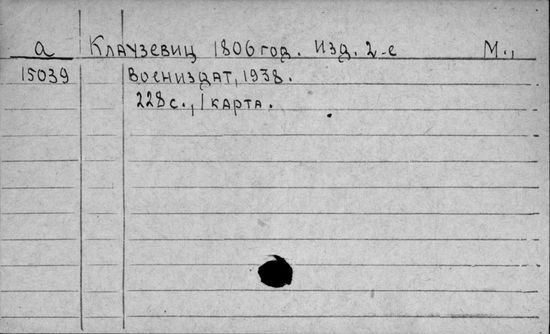 а Клаузевиц 1806 год. Изд. 2-е М.,
15039 Воениздат, 1938.
228 с., 1 карта.